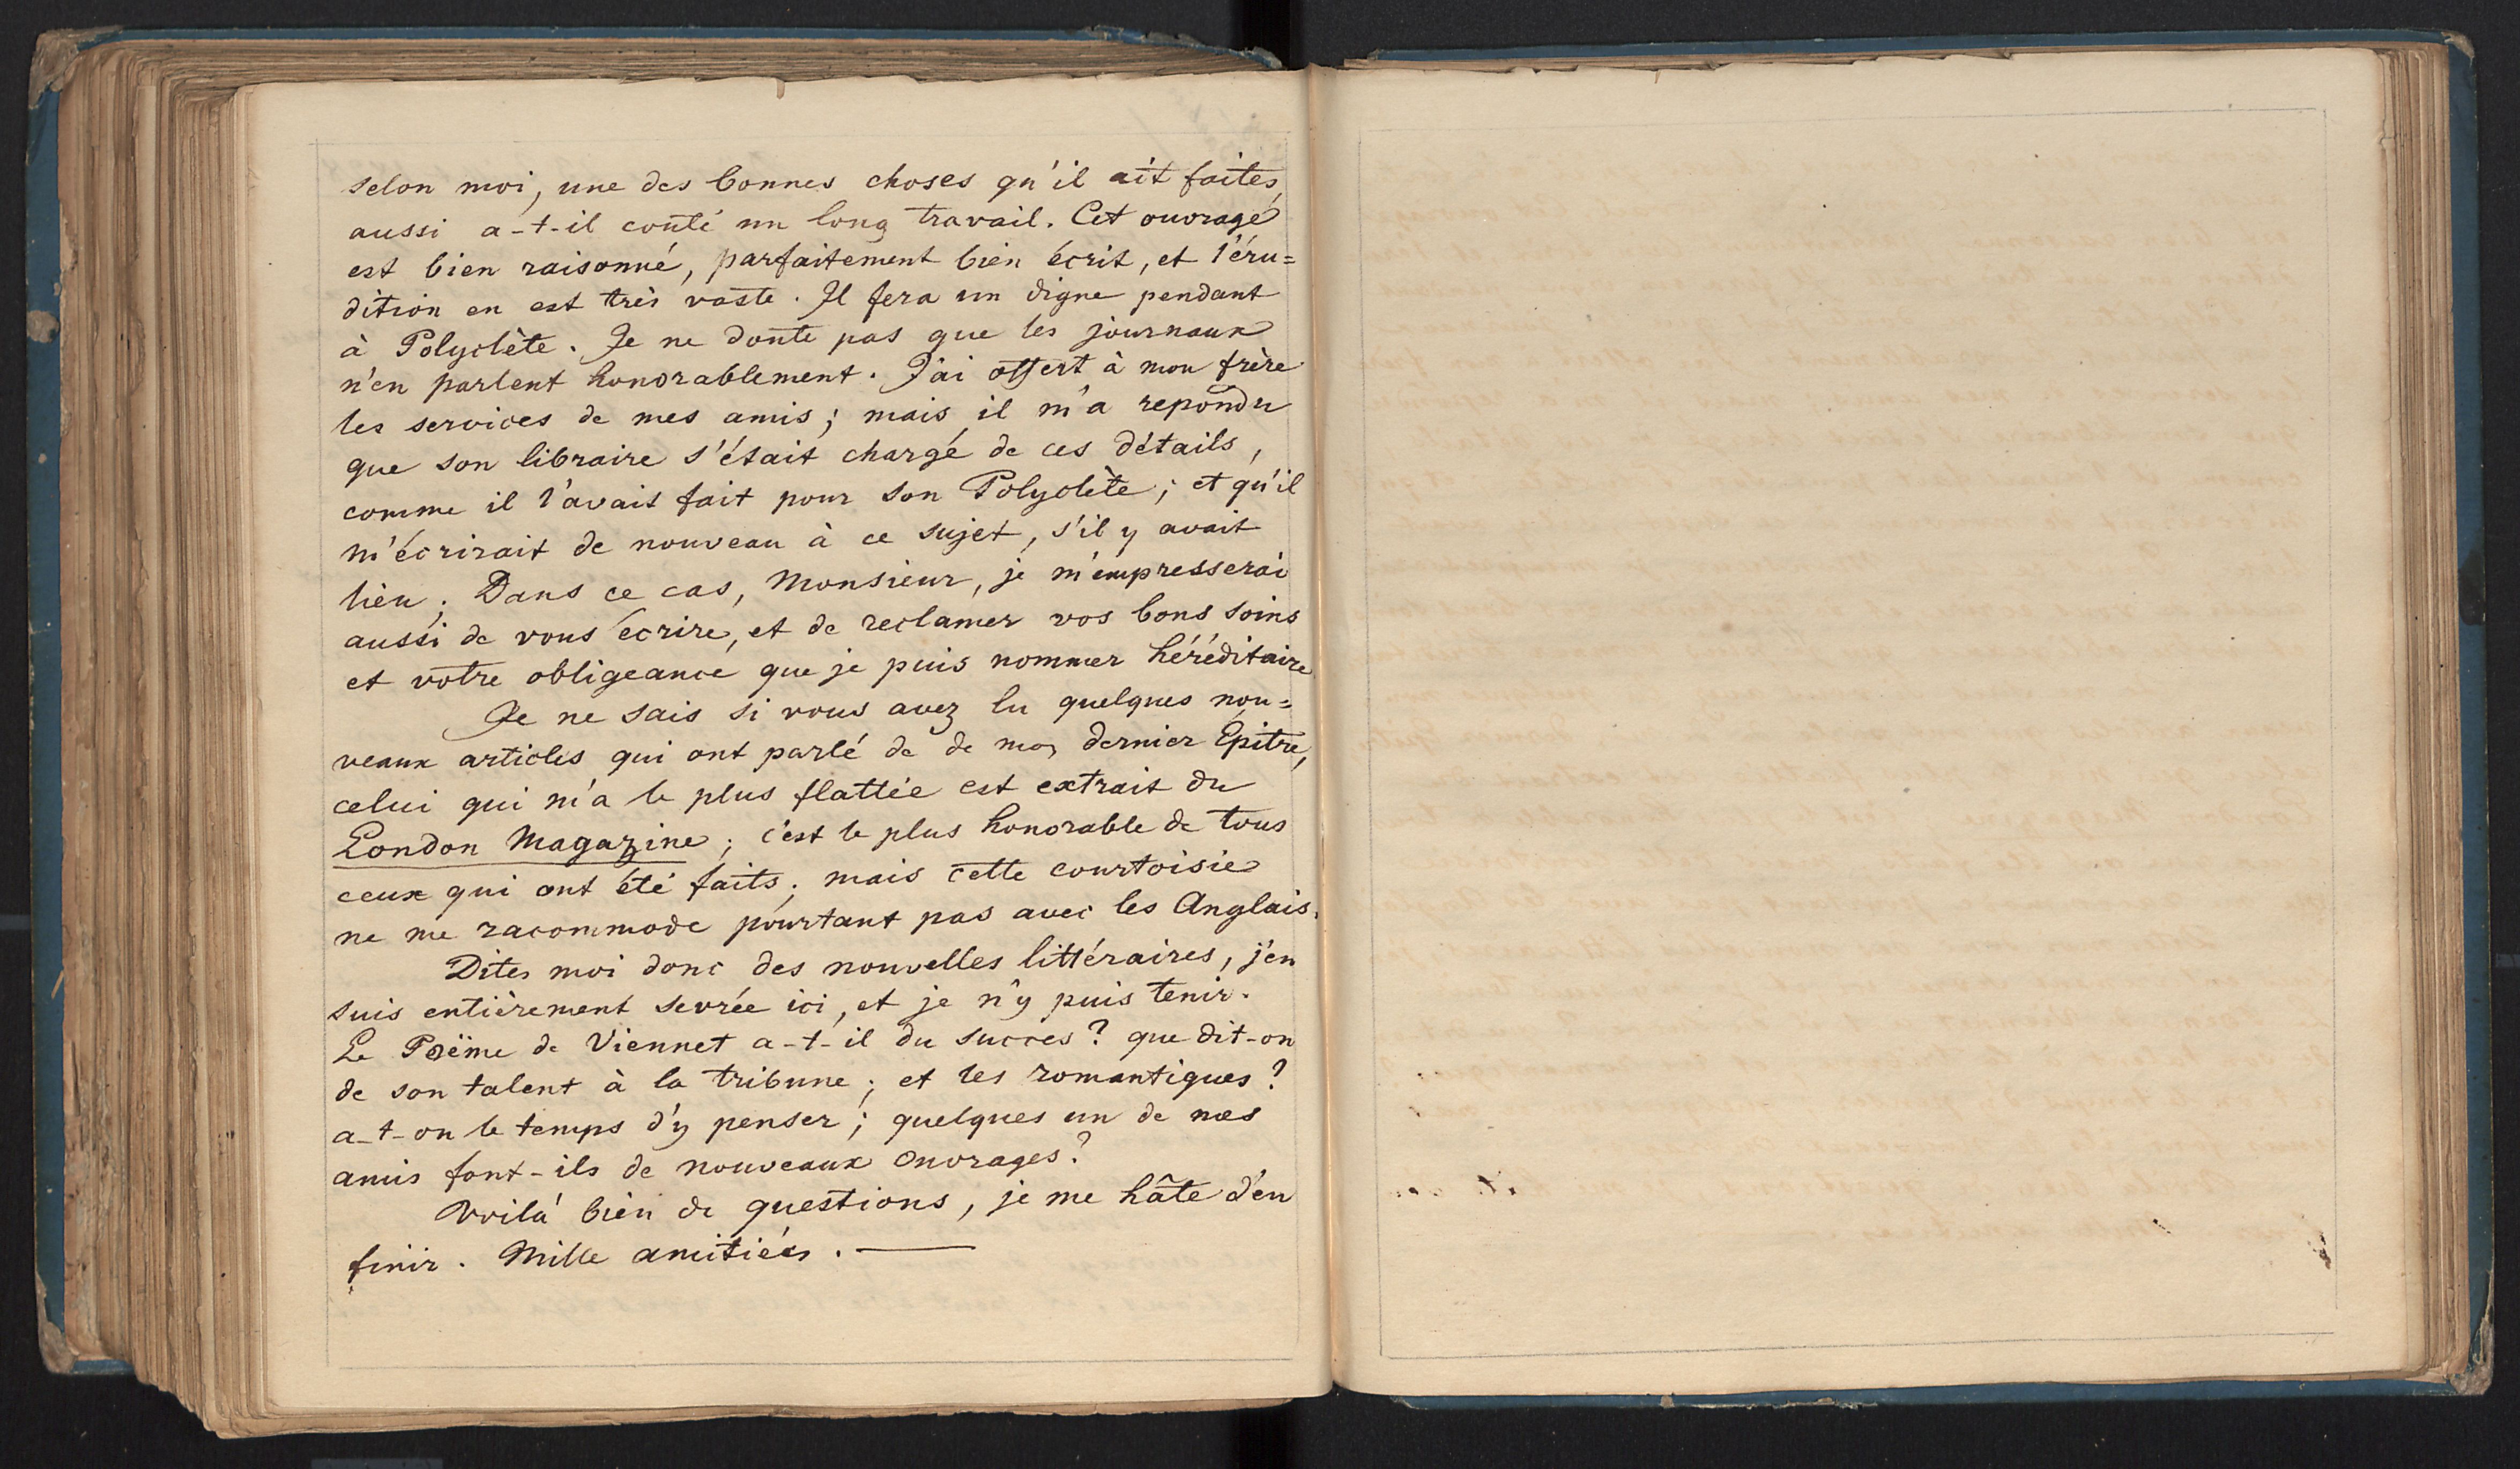 selon moi, une des bonnes choses qu'il ait faites,
aussi a-t-il coûté un long travail. Cet ouvrage
est bien raisonné, parfaitement bien écrit, et l'éru=
dition en est très vaste. Il fera un digne pendant
à Polyclète. Je ne doute pas que les journaux
n'en parlent honorablement. J'ai offert à mon frère
les services de mes amis; mais il m'a repondu
que son libraire s'était chargé de ces détails,
comme il l'avait fait pour son Polyclète; et qu'il
m'écrirait de nouveau à ce sujet, s'il y avait
lieu; Dans ce cas, Monsieur, je m'empresserai
aussi de vous écrire, et de reclamer vos bons soins
et votre obligeance que je puis nommer héréditaire
Je ne sais si vous avez lu quelques nou=
veaux articles qui ont parlé de de mon dernier Epitre,
celui qui m'a le plus flattée est extrait du
London Magazine; c'est le plus honorable de tous
ceux qui ont été faits; mais cette courtoisie
ne me racommode pourtant pas avec les Anglais.
Dites moi donc des nouvelles littéraires, j'en
suis entièrement sevrée ici, et je n'y puis tenir.
Le Poëme de Viennet a-t-il du succes? que dit-on
de son talent à la tribune; et les romantiques?
a-t-on le temps d'y penser; quelques un de mes
amis font-ils de nouveaux ouvrages?
Voilà bien de questions, je me hâte d'en
finir. Mille amitiées. —